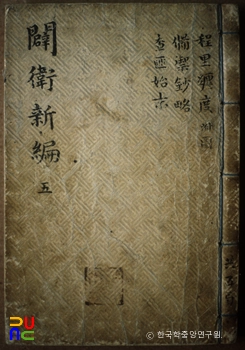 程里躔度 附圖
備禦鈔略
査匪始末
闢衛新編 五
© 한국학중앙연구원